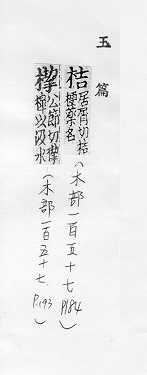 玉篇
桔 居屑切桔梗藥名
(木部一百五十七 P184)
公節切
以汲水
(木部一百五十七 P193)